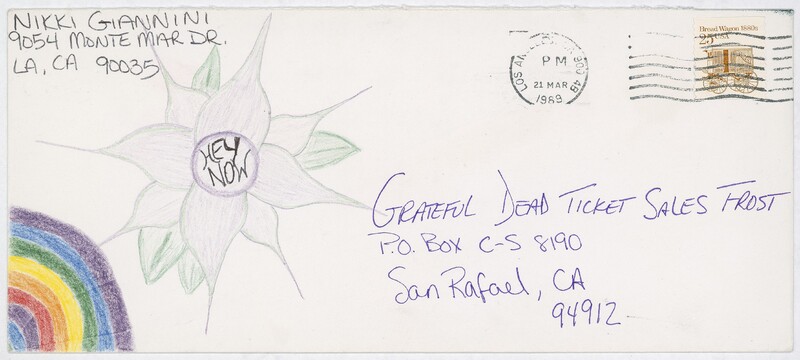 NIKKI GIANNINI
9054 MONTE MAR DR.
LA, CA 90035
PM
21 MAR
1989
Bread Wagon 1880s
25 USA
HEY
NOW
GRATEFUL DEAD TICKET SALES FROST
P.O. BOX C-S 8190
San Rafael, CA
94912